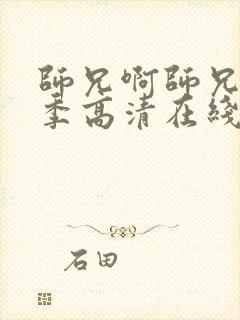 師兄啊師兄
季高清在綫
石田